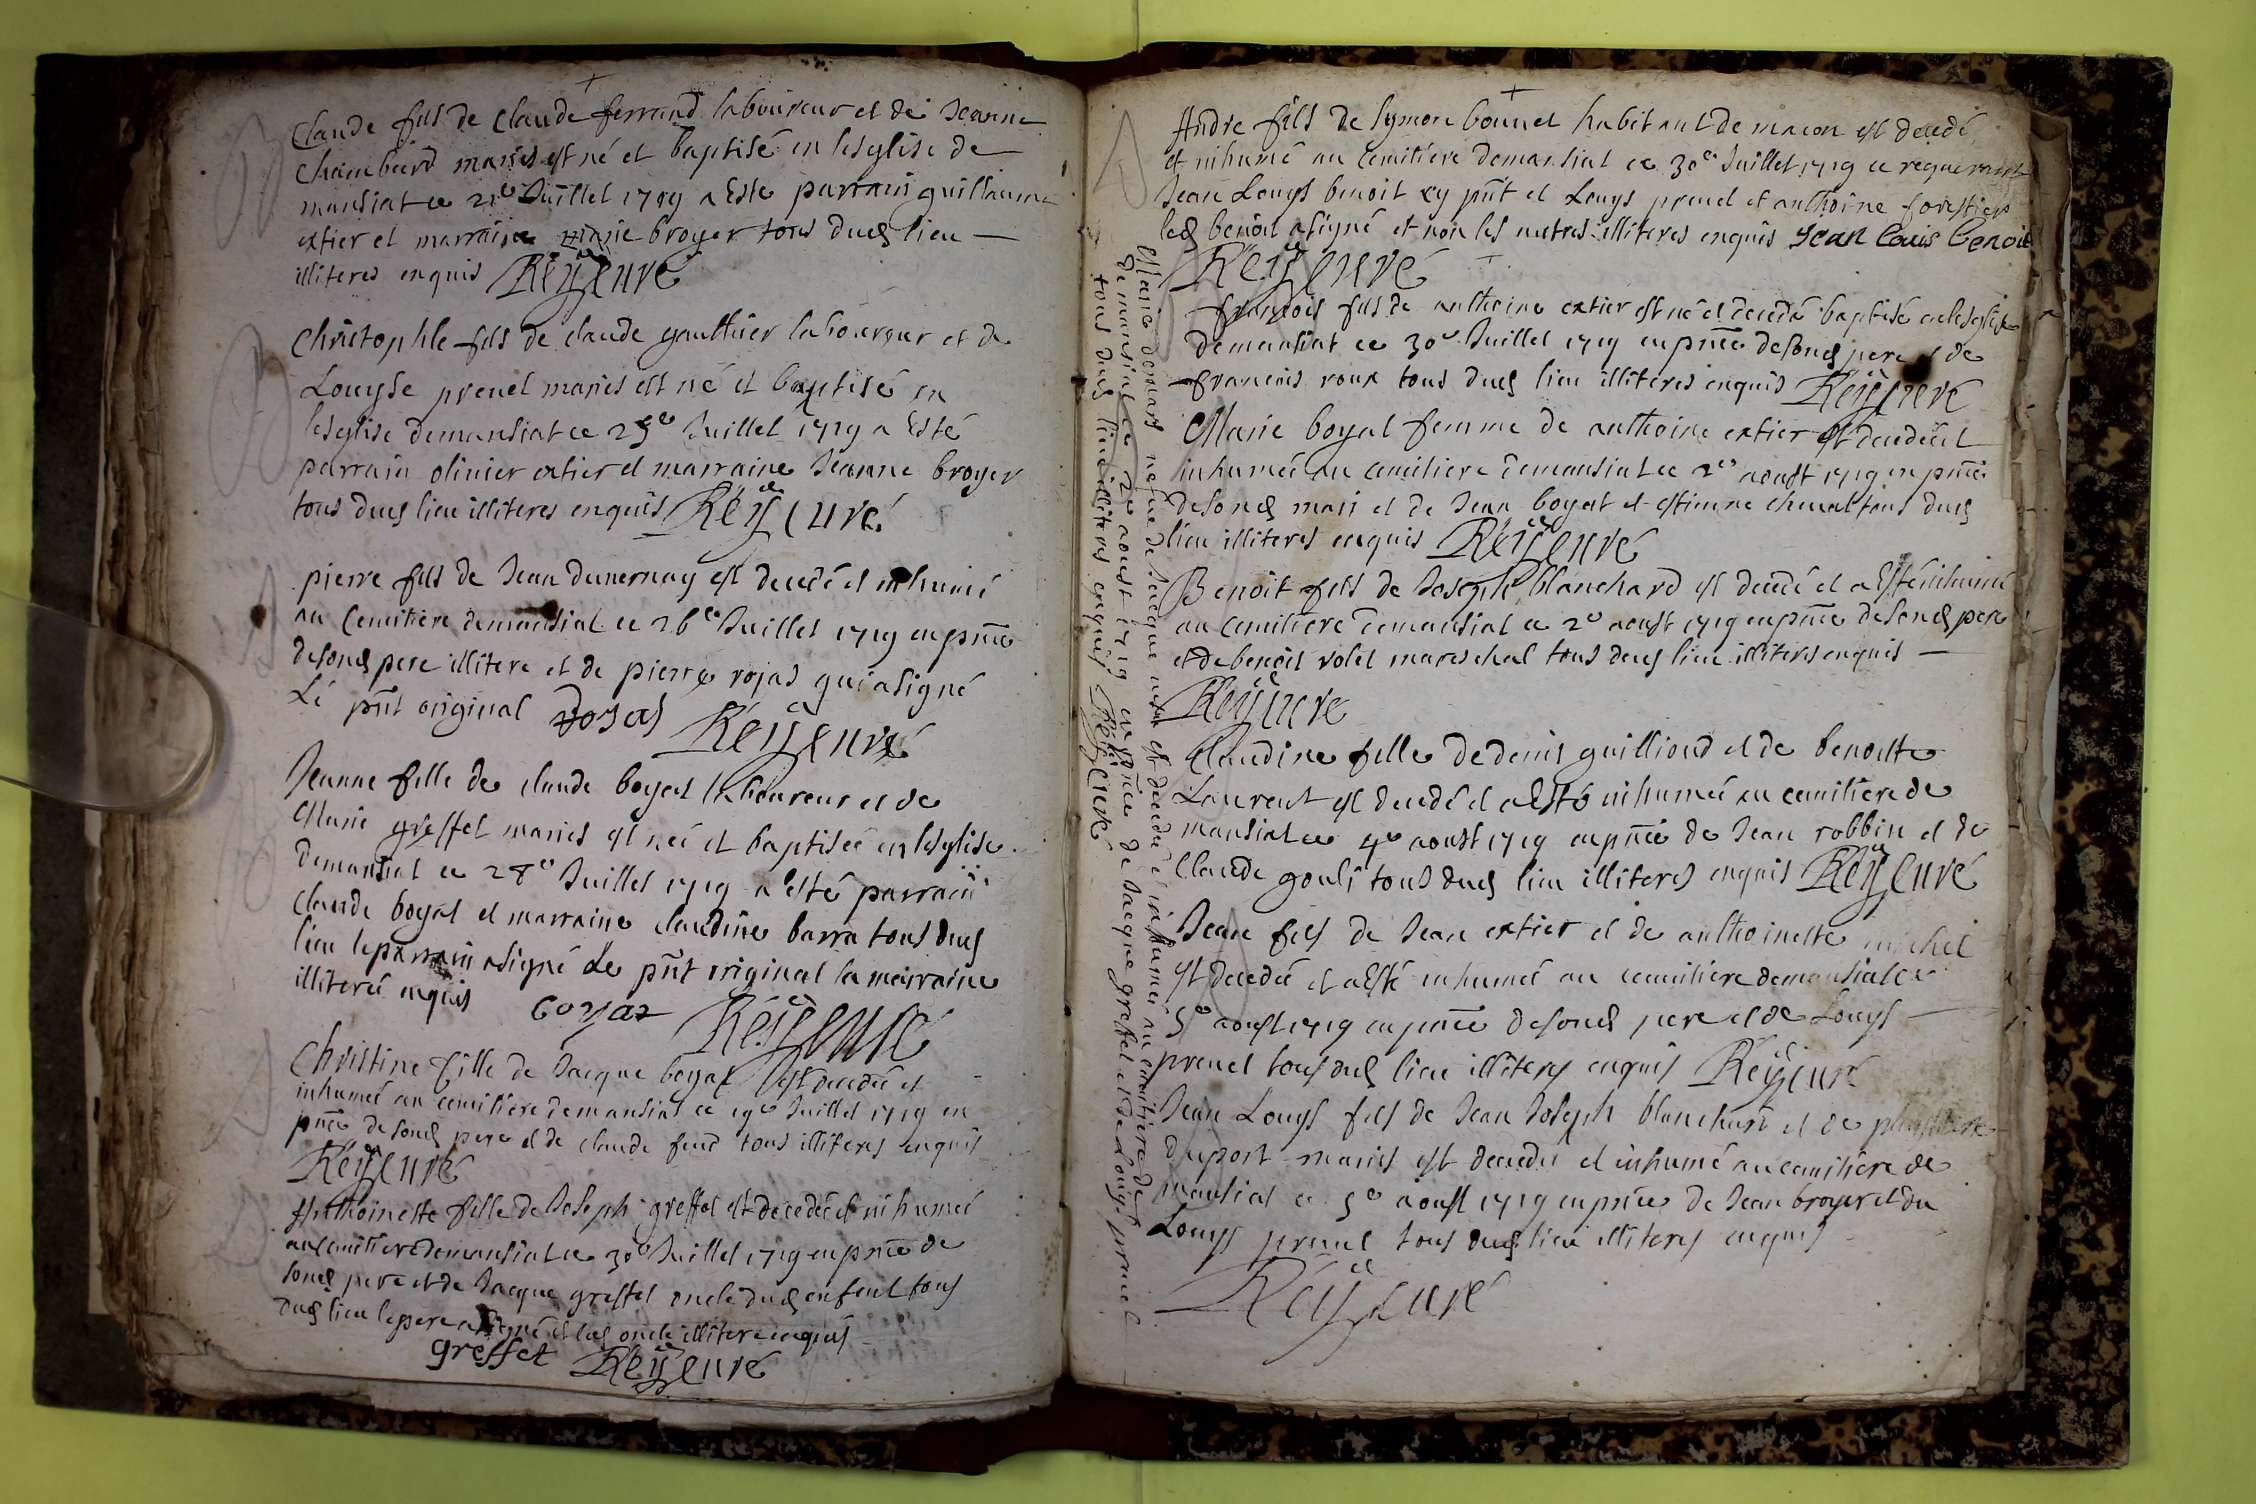 Claude fils de Claude ferrand laboureur et de Jeanne
Chambard mariés est né et baptisé en lesglise de
mansiat ce 21e Juillet 1719 a este parrain guillaume
extier et marraine marie broyer tous dud lieu
illiteres enquis Reÿ curé
Christophle fils de claude gaulthier laboureur et de
Louyse prenel mariés est né et baptisé en
lesglise demansiat ce 25e Juillet 1719 a Esté
parrain olinier extier et marraine Jeanne broyer
tous dud lieu illiteres enquis Reÿ curé
pierre fils de Jean est decedé et inhumé
au Cemitiere demansiat ce 26e Juillet 1719 en pnce
desond pere illitere et de pierre rojas qui asigné
Le pnt original Rojas Reÿ curé
Jeanne fille de claude boyat laboureur et de
Marie greffet mariés est née et baptisée en lesglise
demansiat ce 28e Juillet 1719 a esté parrain
claude boyat et marraine claudine barra tous dud
lieu leparrain asigné Le pnt original la marraine
illiteré enquis boyat Reÿ curé
Christine fille de Jacque boyat est decedée et
inhumeé au cemitiere demansiat ce 29e Juillet 1719 en
pnce desond pere et de claude feud tous illiteres enquis
Reÿ curé
Anthoinette fille de Joseph greffet est decedée et inhumeé
au Cemitiere demansiat ce 30e Juillet 1719 en pnce de
sond pere et de Jacque greffet oncle dud enfent tous
dud lieu lepere asigné et led oncle illitere enquis
greffet Reÿ curé
Andre fils de symon bonnet habitant de macon est decedé
et inhumé au Cemitiere demansiat ce 30e Juillet 1719 ce requerant
Jean Louys benoit cy pnt et Louys prenel et anthoine forestier
led benoit asigné et non les autres illiteres enquis Jean Louis benoit
Reÿ curé
françois fils de anthoine extier est né et decedé baptisé en lesglise
demansiat ce 30e Juillet 1719 en pnce desond pere et de
francois roux tous dud lieu illiteres enquis Reÿ curé
Marie boyat femme de anthoine extier est decedée et
inhumeé au cemitiere demansiat ce 2e aoust 1719 en pnce
desond mari et de Jean boyat et estienne cheval tous dud
lieu illiteres enquis Reÿ curé
Benoit fils de Joseph blanchard est decedé et a Esté inhumé
au Cemitiere demansiat ce 2e aoust 1719 en pnce desond pere
et de benoit volet mareschal tous dud lieu illiteres enquis
Reÿ curé
Claudine fille de denis guilliond et de benoiste
Laurent est decedé et a Esté inhumeé au cemitiere de
mansiat ce 4e aoust 1719 en pnce de Jean robbin et de
Claude gouli tous dud lieu illiteres enquis Reÿ curé
Jean fils de Jean extier et de anthoinette michel
est decedé et a Esté inhumé au cemitiere demansiat ce
5e aoust 1719 en pnce desond pere et de Louys
prenel tous dud lieu illiteres enquis Reÿ curé
Jean Louys fils de Jean Joseph blanchard et de
duport mariés est decedé et inhumé au cemitiere de
mansiat ce 5e aoust 1719 en pnce de Jean broyer et du
Louys prenel tous dud lieu illiteres enquis
Reÿ curé
Marie demars de Jacque est decedée et inhumeé au cemitiere de
demansiat ce 2e aoust 1719 en pnce de Jacque greffet et de Louys prenel
tous dud lieu illiteres enquis Reÿ curé